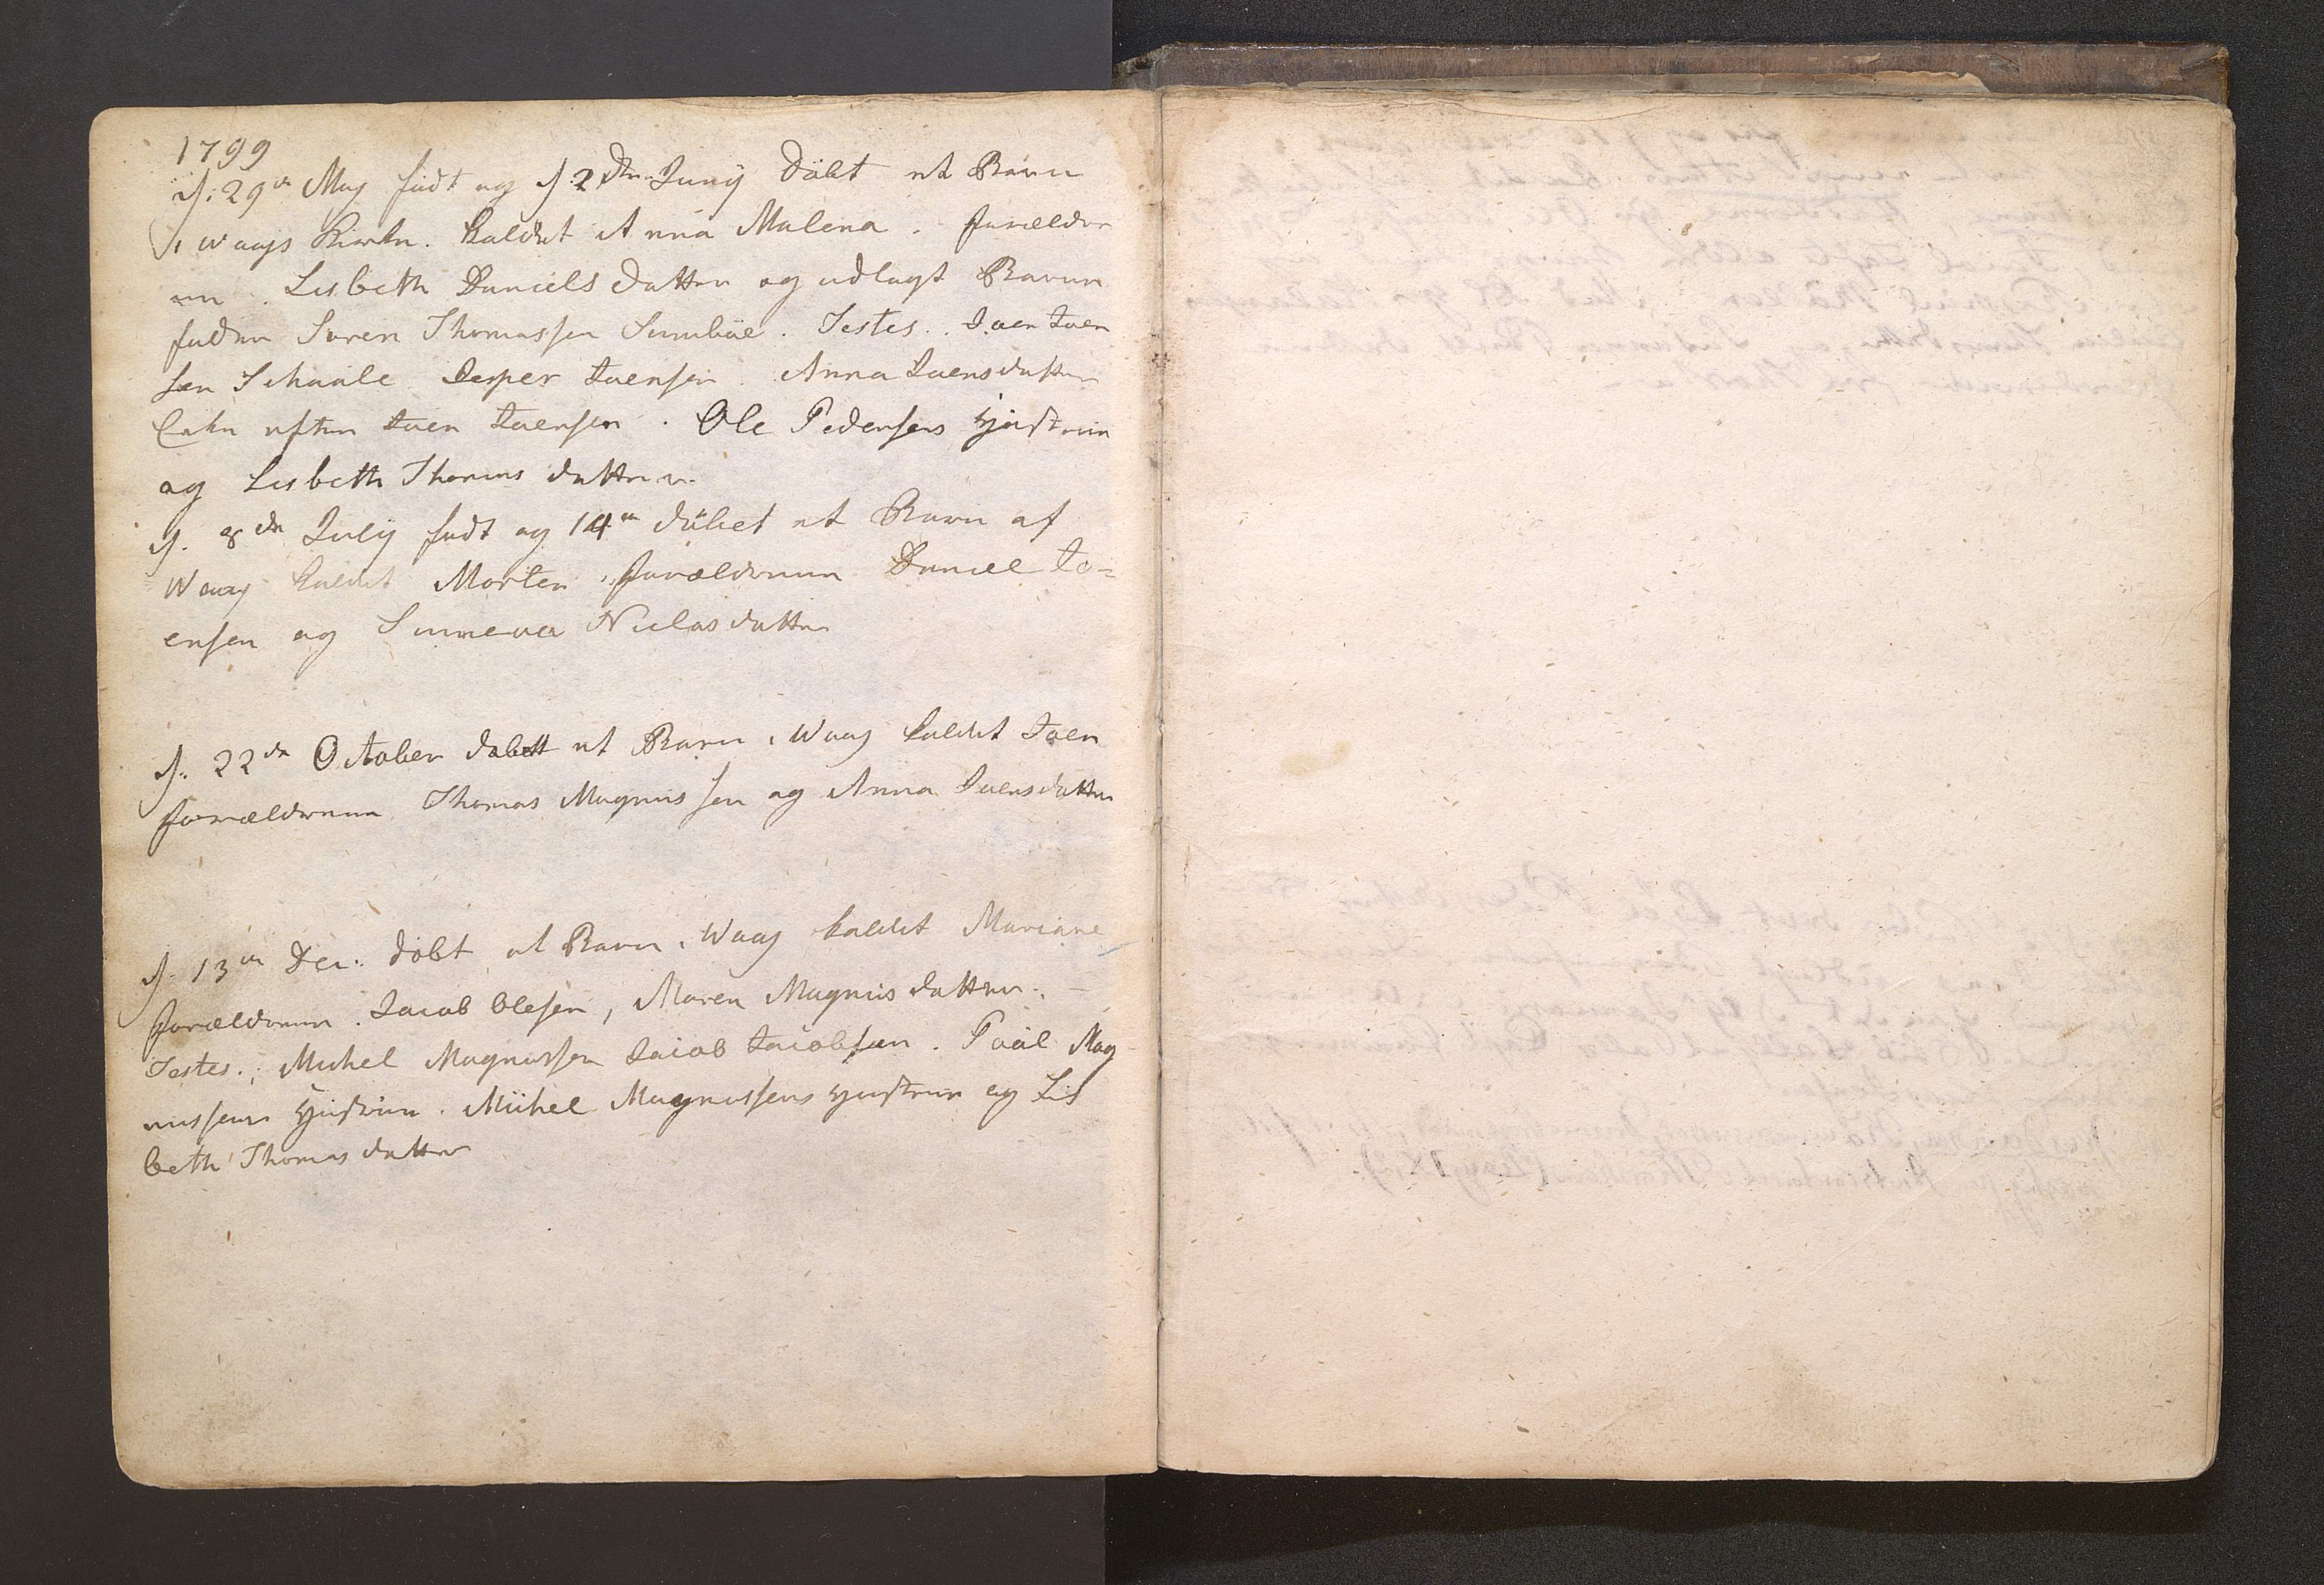 1799
d: 29de May födt og d. 2den Junij Döbt et Barn
i Waags Kirke. kaldet Anna Malena. Forældre
ne. Lisbeth Daniels datter og udlagt Barne
fader Soren Thomassen Sumböe. Testes. Joen Joen
sen Schaale Jesper Joensen. Anna Joensdatter
Enke efter Joen Joensen. Ole Pedersens Hustrue
og Lisbeth Thomas datter.
d. 8de Julij födt og 14de döbet et Barn af
Waag kaldet Morten, forælderne Daniel Jo=
ensen og Sunneva Niclasdatter
d. 22de October döbett et Barn i Waag kaldet Joen
forælderne Thomas Magnussen og Anna Joensdatter
d. 13de Dec: döbt et Barn i Waag kaldet Mariane
forælderne. Jacob Olesen, Maren Magnus datter. –
Testes. Michel Magnussen Jacob Jacobsen. Poül Mag
nussens Hüstrue. Michel Magnussens Hustrue og Lis
beth Thomas datter